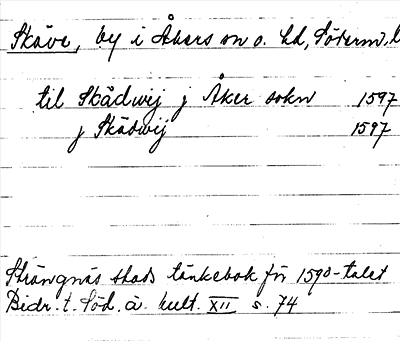 Skäve, by i Åkers sn o. hd, Söderm. l
til Skädwij j Åker sokn 1597
j Skädwij 1597
Strängnäs stads tänkebok för 1590-talet
Bidr. t. Söd. ä. kult. XII s. 74